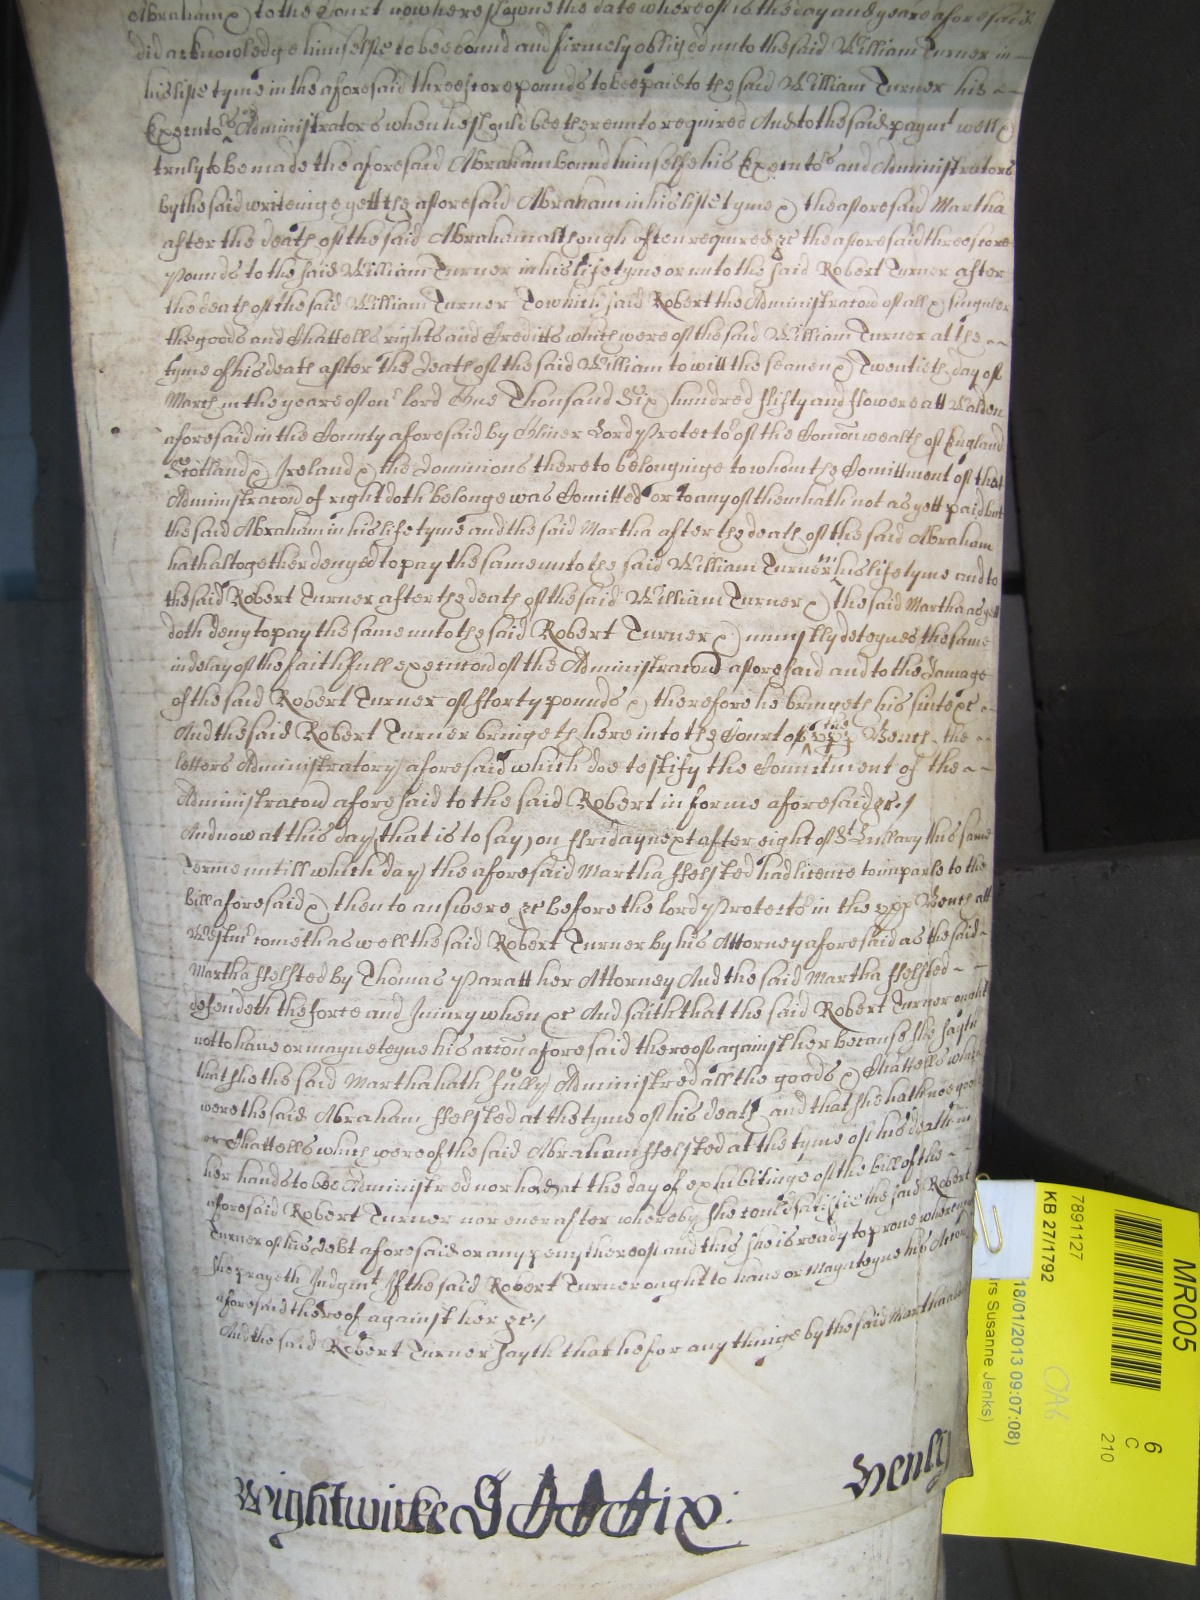 Abraham &) to the Court now here showne the date whereof is the day and yeare aforesaid
did acknowledge himselfe to bee bound and firmely obliged unto the said William Turner in
his life tyme in the aforesaid threescore pounds to bee paid to the said William Turner his
Executors Administrators when he should bee thereunto required And to the said paymt well &
truly to be made the aforesaid Abraham bound himselfe his Executors and Administrators
by the said writeinge yett the aforesaid Abraham in his life tyme &) the aforesaid Martha
after the death of the said Abraham although often required &c the aforesaid threescore
pounds to the said William Turner in his life tyme or unto the said Robert Turner after
the death of the said William Turner To which said Robert the Administracon of all & singuler
the goods and Chattells rights and Creditts which were of the said William Turner at the
tyme of his death after the death of the said William to witt the seaven & Twentieth day of
March in the yeare of our lord One Thousand Six hundred fifty and ffowere att Walden
aforesaid in the County aforesaid by Oliver Lord Protector of the Comonwealth of England
Scotland &) Ireland &) the Dominions thereto belonginge to whom the Comittment of that
Administracon of right doth belonge was Comitted or to any of them hath not as yett paid but
the said Abraham in his life tyme and the said Martha after the death of the said Abraham
hath altogether denyed to pay the same unto the said William Turner in his life tyme and to
the said Robert Turner after the death of the said William Turner &) the said Martha as yett
doth deny to pay the same unto the said Robert Turner &) uniustly deteynes the same
in delay of the faithfull execucon of the Administracon aforesaid and to the Damage
of the said Robert Turner of fforty pounds &) therefore he bringeth his suite &c
And the said Robert Turner bringeth here into the Court of the upp Bench the
letters Administratory aforesaid which doe testify the Comittment of the
Administracon aforesaid to the said Robert in forme aforesaid &c /
And now at this day (that is to say) on ffriday next after eight of St Hillary this same
Terme untill which day) the aforesaid Martha ffelsted had licence to imparle to the
bill aforesaid &) then to answere &c before the lord Protector in the upp Bench att
Westmr cometh as well the said Robert Turner by his Attorney aforesaid as the said
Martha ffelsted by Thomas Paratt her Attorney And the said Martha ffelsted
defendeth the force and Iniury when &c And saith that the said Robert Turner ought
not to have or mayneteyne his accon aforesaid thereof against her because she sayth
that she the said Martha hath fully Administred all the goods &) Chattells which
were the said Abraham ffelsted at the tyme of his death and that she hath noe goods
or Chattells which were of the said Abraham ffelsted at the tyme of his death in
her hands to bee Administred nor had at the day of exhibitinge of the bill of the
aforesaid Robert Turner nor ever after whereby she could satisfie the said Robert
Turner of his debt aforesaid or any peny thereof and this she is ready to prove whereupon
she prayeth Iudgmt If the said Robert Turner ought to have or Mayneteyne his Accon
aforesaid thereof against her &c /
And the said Robert Turner sayth that he for any thinge by the said Martha
Wightwicke
Henly
MR005
6
C
210
7891127
KB 27/1792
18/01/2013 09:07:08)
rs Susanne Jenks)